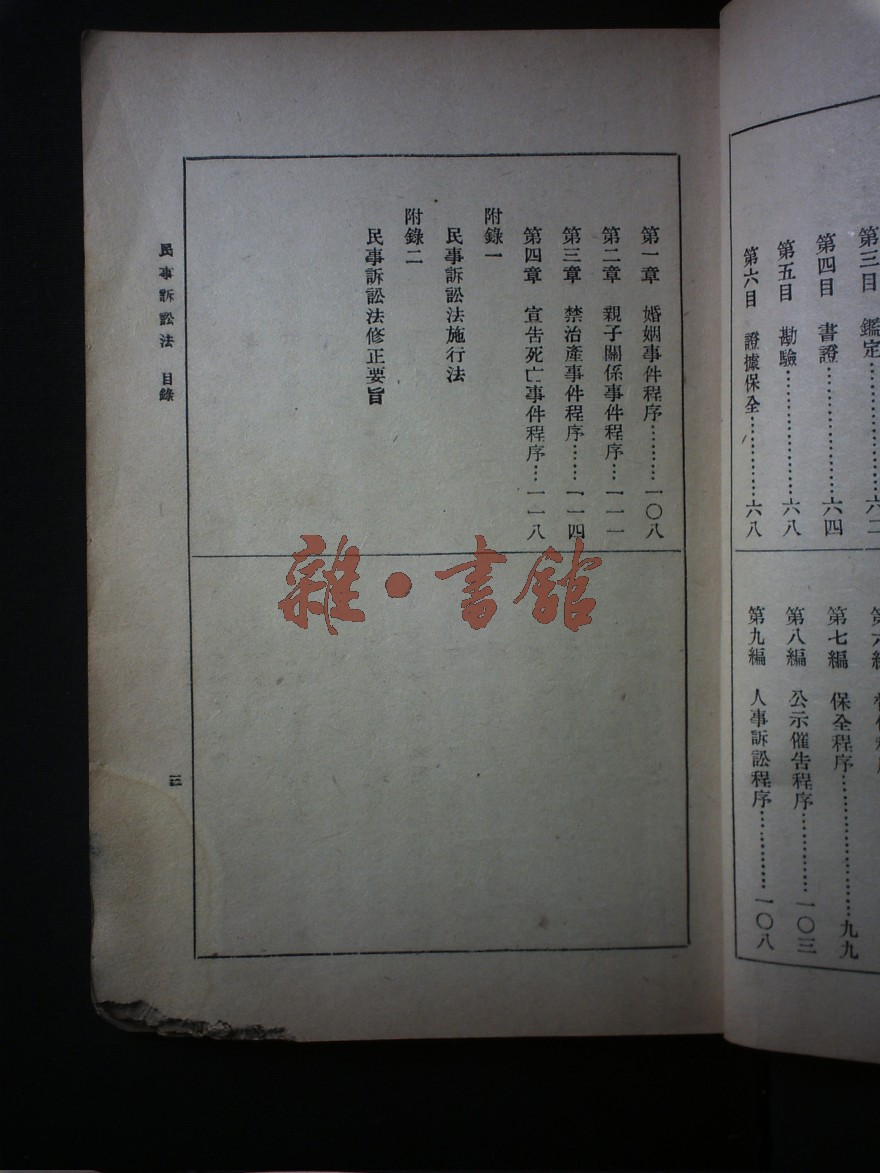 第三目　鑑定………………六二
第四目　書證………………六四
第五目　勘驗………………六八
第六目　證據保全…………六八
第七編　保全程序………………九九
第八編　公示催告程序…………一〇三
第九編　人事訴訟程序…………一〇八
第一章　婚姻事件程序………一〇八
第二章　親子關係事件程序…一一一
第三章　禁治產事件程序……一一四
第四章　宣告死亡事件程序…一一八
附錄一
民事訴訟法施行法
附錄二
民事訴訟法修正要旨
民事訴訟法　目錄
三
雜・書館